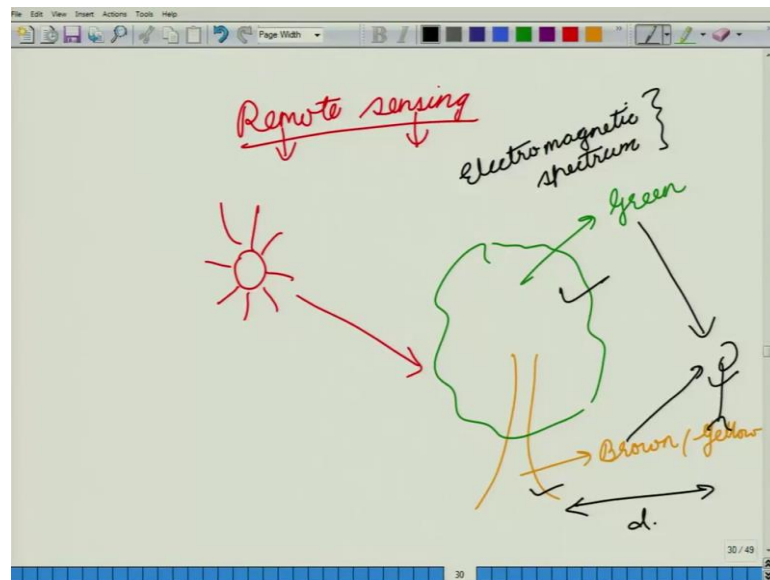 File Edit View Insert Actions Tools Help
Page Width
B I
Remote sensing
Electromagnetic
spectrum
Green
Brown / Yellow
d.
30 / 49
30